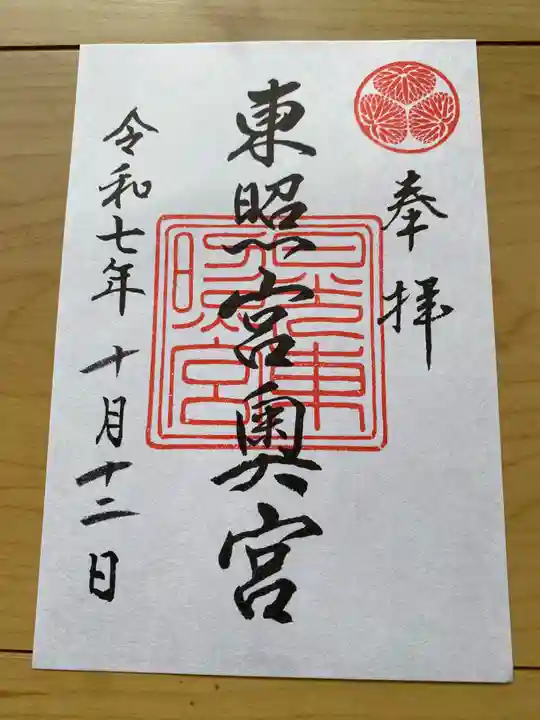 奉拝
東照宮奥宮
日光東照宮
令和七年 十月十二日